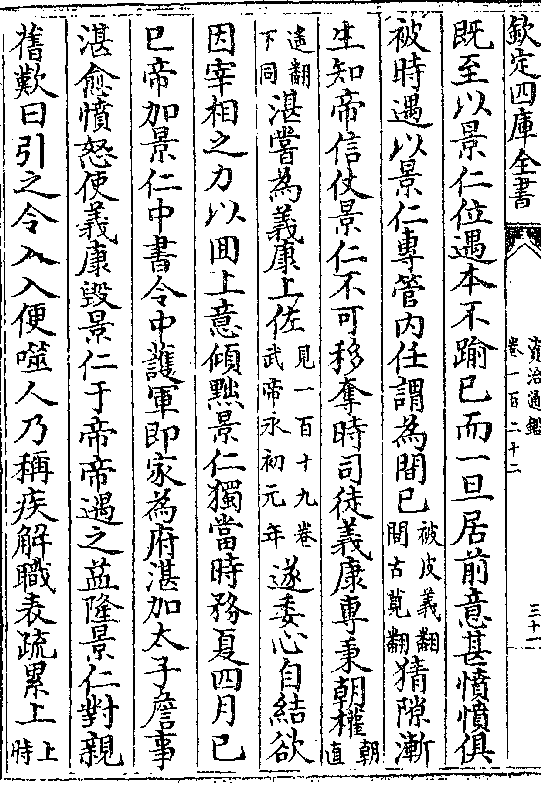 欽定四庫全書
資治通鑑
卷一百二十二
三十一
既至以景仁位遇本不踰已而一旦居前意甚憤憤俱
被時遇以景仁專管内任謂為間已被皮義翻間古莧翻猜隙漸
生知帝信仗景仁不可移奪時司徒義康專秉朝權朝直
遥翻下同湛嘗為義康上佐見一百十九卷武帝永初元年遂委心自結欲
因宰相之力以囬上意傾黜景仁獨當時務夏四月已
巳帝加景仁中書令中護軍即家為府湛加太子詹事
湛愈憤怒使義康毁景仁于帝帝遇之益隆景仁對親
舊歎曰引之令入入便噬人乃稱疾解職表疏累上上時